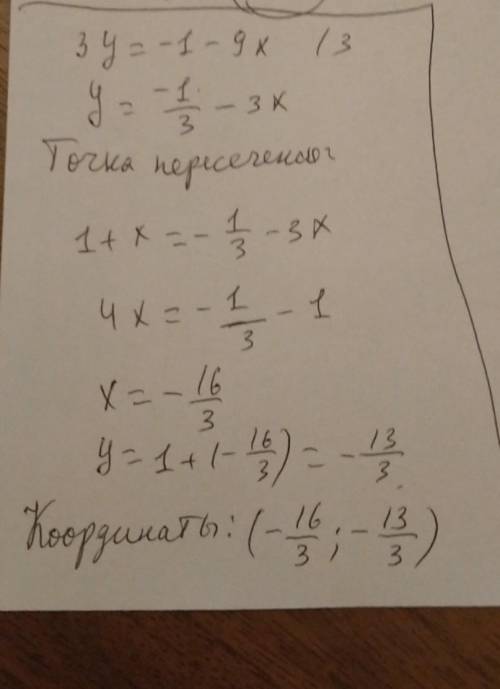 3y = -1 - 9x /3
y = -1/3 - 3x
Точка пересечения
1 + x = - 1/3 - 3x
4x = - 1/3 - 1
x = - 16/3
y = 1 + (- 16/3) = - 13/3
Координаты: (- 16/3 ; - 13/3)